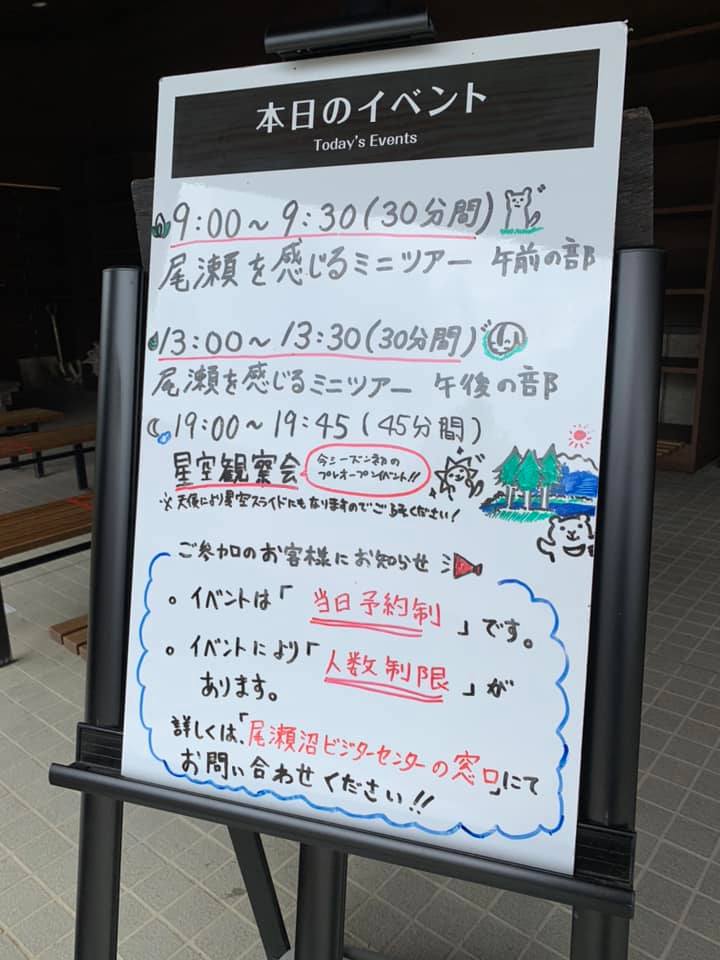 本日のイベント
Today's Events
9:00～9:30(30分間)
尾瀬を感じるミニツアー 午前の部
13:00～13:30(30分間)
尾瀬を感じるミニツアー 午後の部
19:00～19:45(45分間)
星空観察会
今シーズン初の
プレオープンイベント!!
※天候により星空スライドにもなりますのでご了承ください!
ご参加のお客様にお知らせ
○イベントは「当日予約制」です。
○イベントにより「人数制限」が
あります。
詳しくは、「尾瀬沼ビジターセンターの窓口」にて
お問い合わせください!!